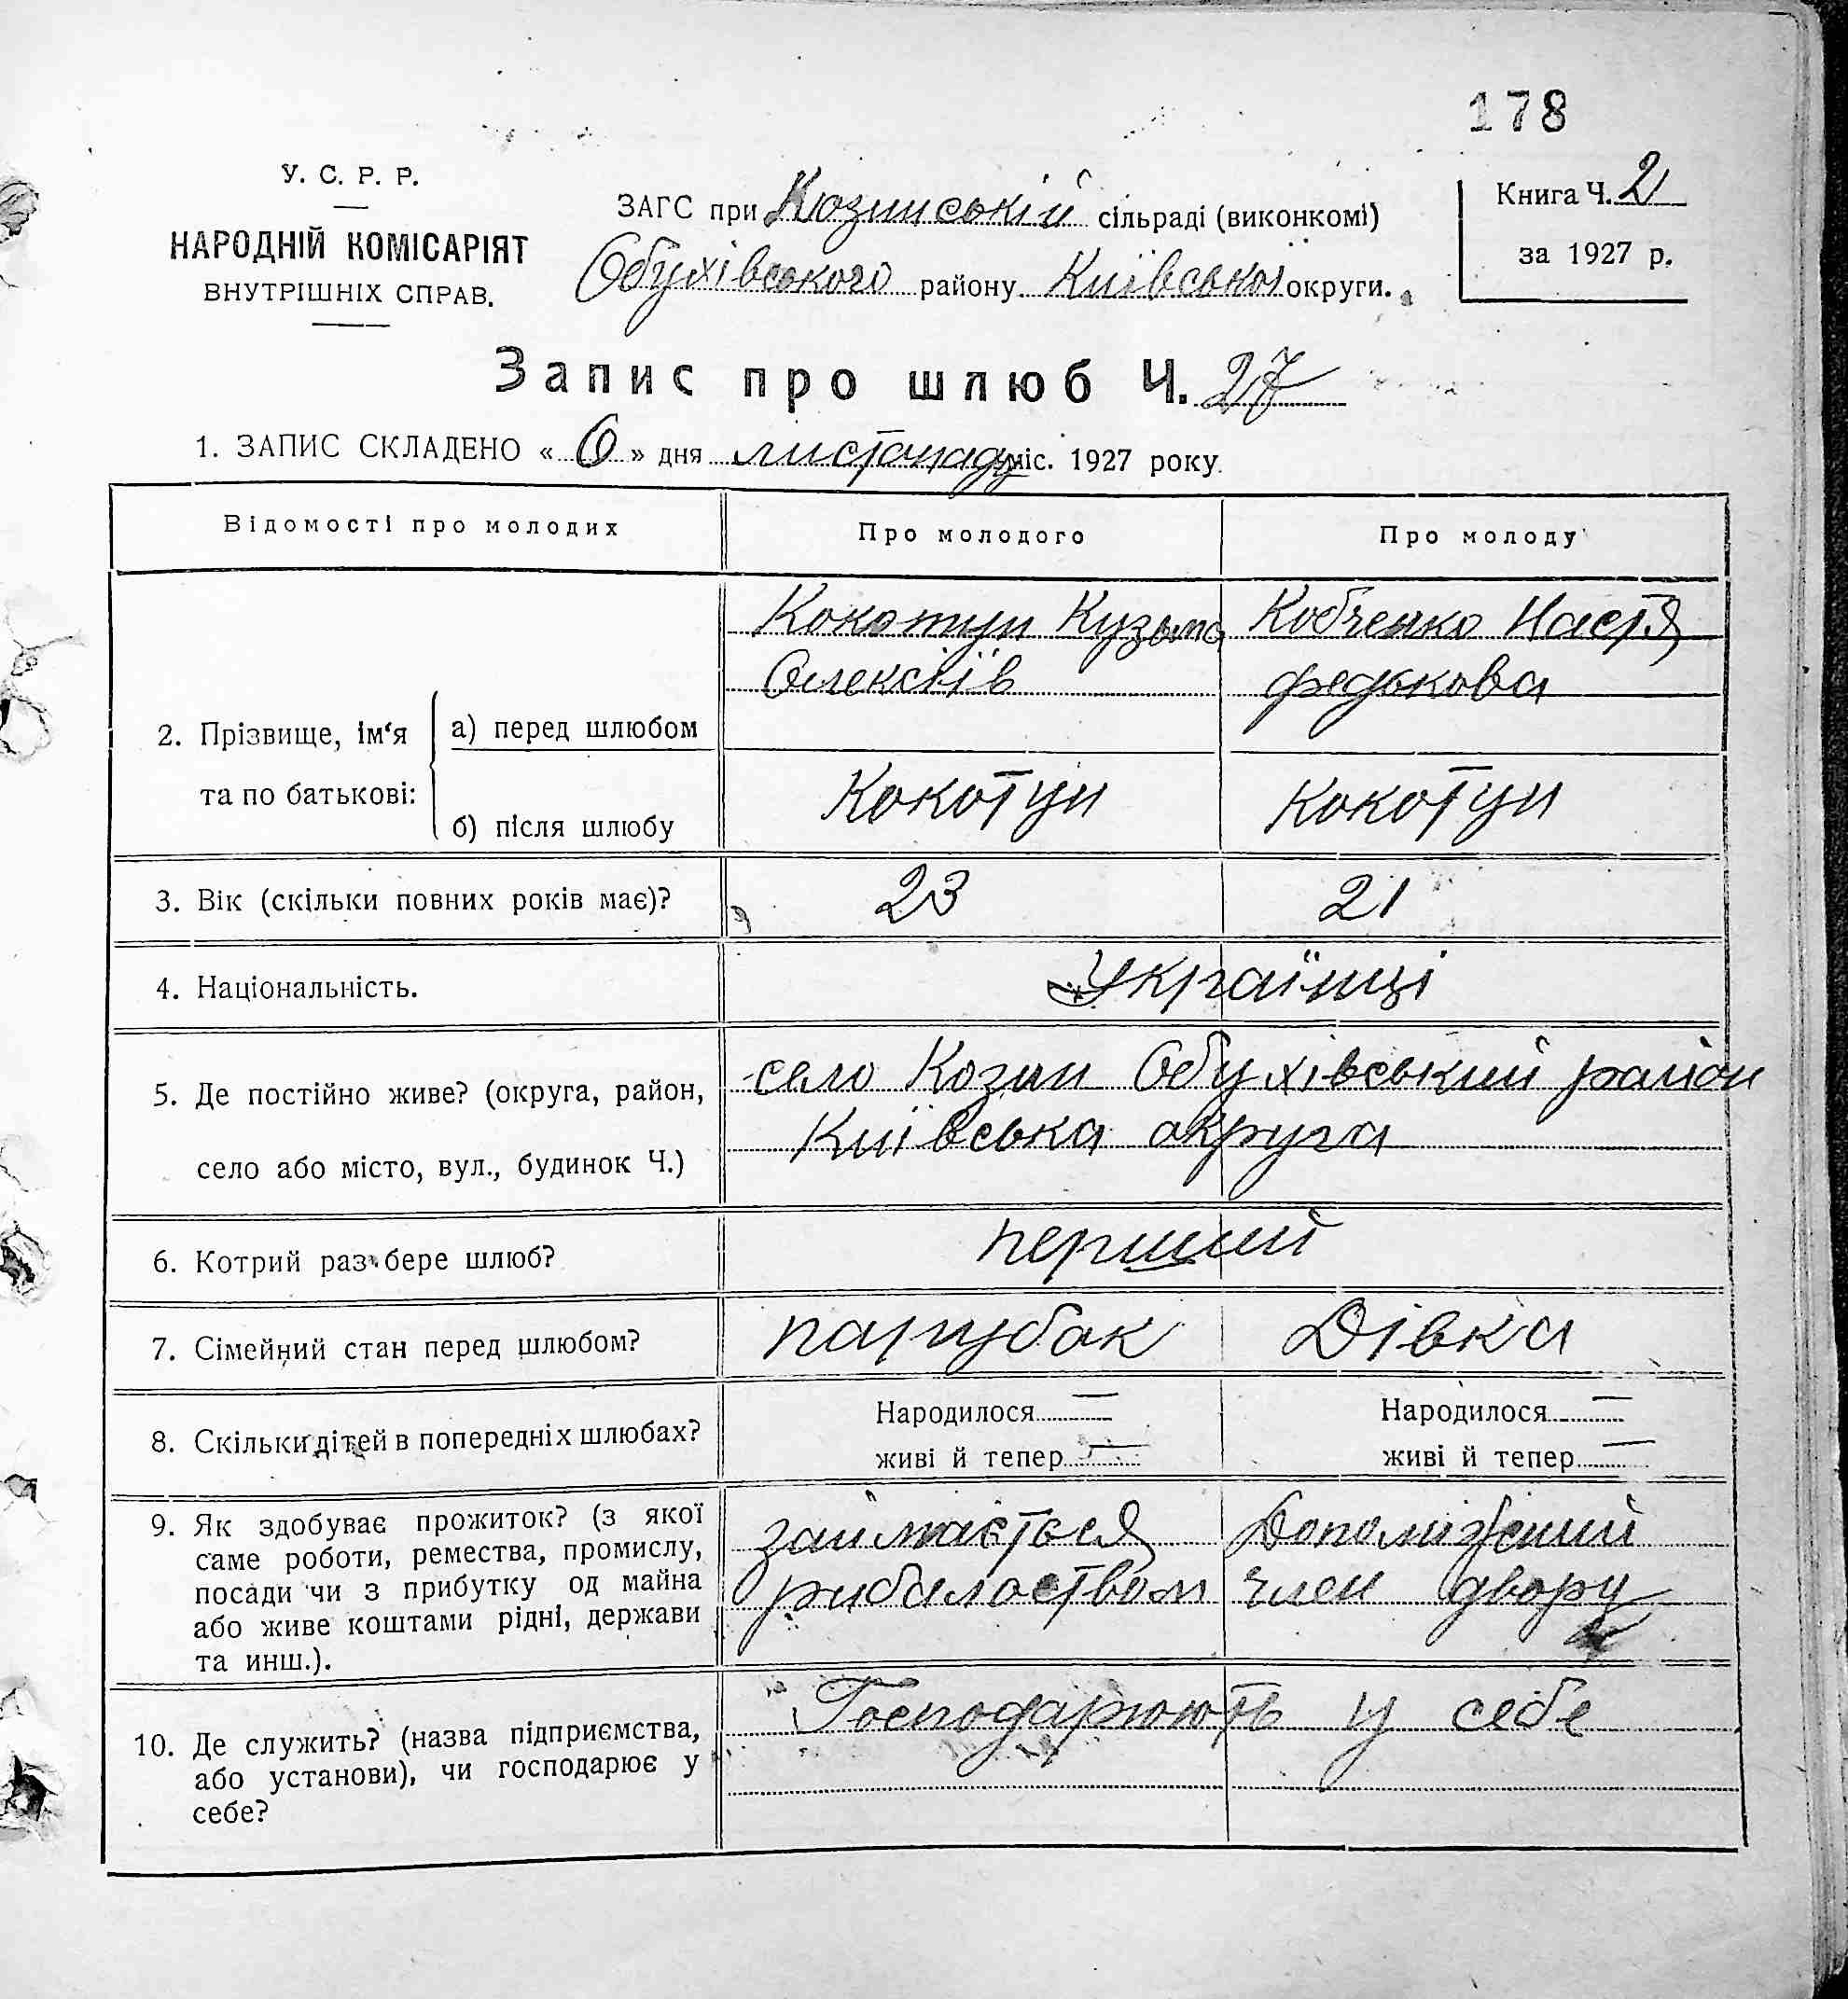 178
У. С. Р. Р.
НАРОДНІЙ КОМІСАРІЯТ
ВНУТРІШНІХ СПРАВ.
ЗАГС при Козинській сільраді (виконкомі)
Обухівського району Київської округи.
Книга Ч. 2
за 1927 р.
Запис про шлюб Ч. 27
1. ЗАПИС СКЛАДЕНО « 6 » дня листопаду міс. 1927 року
Відомості про молодих
Про молодого
Про молоду
2. Прізвище, ім‘я
та по батькові:
а) перед шлюбом
Кокотун Кузьма
Олексіїв
Кобченко Настя
федькова
б) після шлюбу
Кокотун
Кокотун
3. Вік (скільки повних років має)?
23
21
4. Національність.
Українці
5. Де постійно живе? (округа, район,
село або місто, вул., будинок Ч.)
село Козин Обухівський район
Київська округа
6. Котрий раз бере шлюб?
перший
7. Сімейний стан перед шлюбом?
парубок
Дівка
8. Скільки дітей в попередніх шлюбах?
Народилося —
живі й тепер —
Народилося —
живі й тепер —
9. Як здобуває прожиток? (з якої
саме роботи, ремества, промислу,
посади чи з прибутку од майна
або живе коштами рідні, держави
та инш.).
займається
рибальством
Допоміжний
член двору
10. Де служить? (назва підприємства,
або установи), чи господарює у
себе?
Господарюють у себе